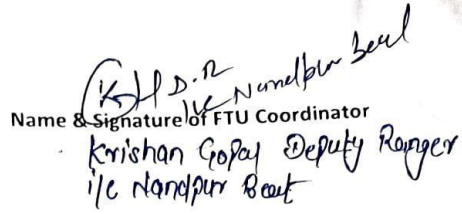 D.R
I/c Nandpur Beat
Name & Signature of FTU Coordinator
Krishan Gopal Deputy Ranger
i/c Nandpur Beat